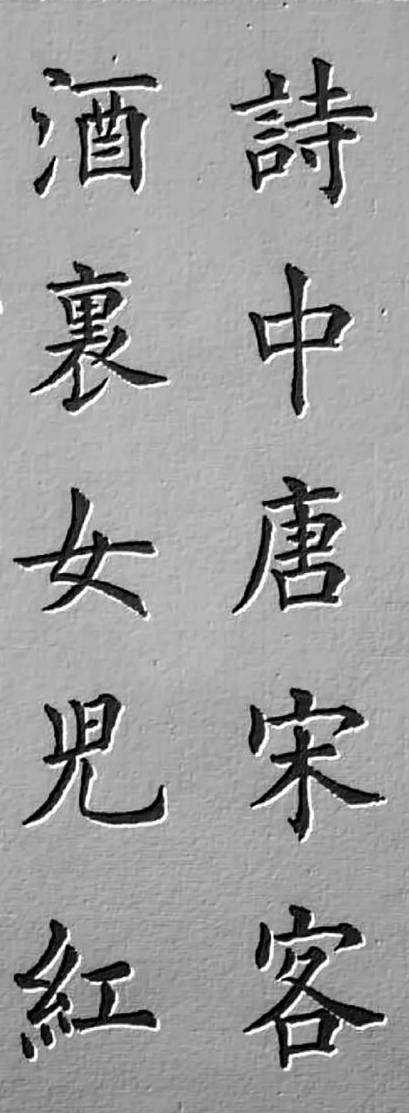 詩中唐宋客
酒裏女児紅